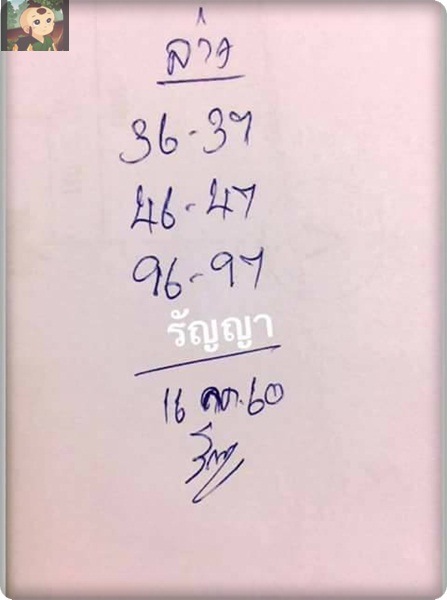 ล่าง
36-37
46-47
96-97
รัญญา
16 ตค.60